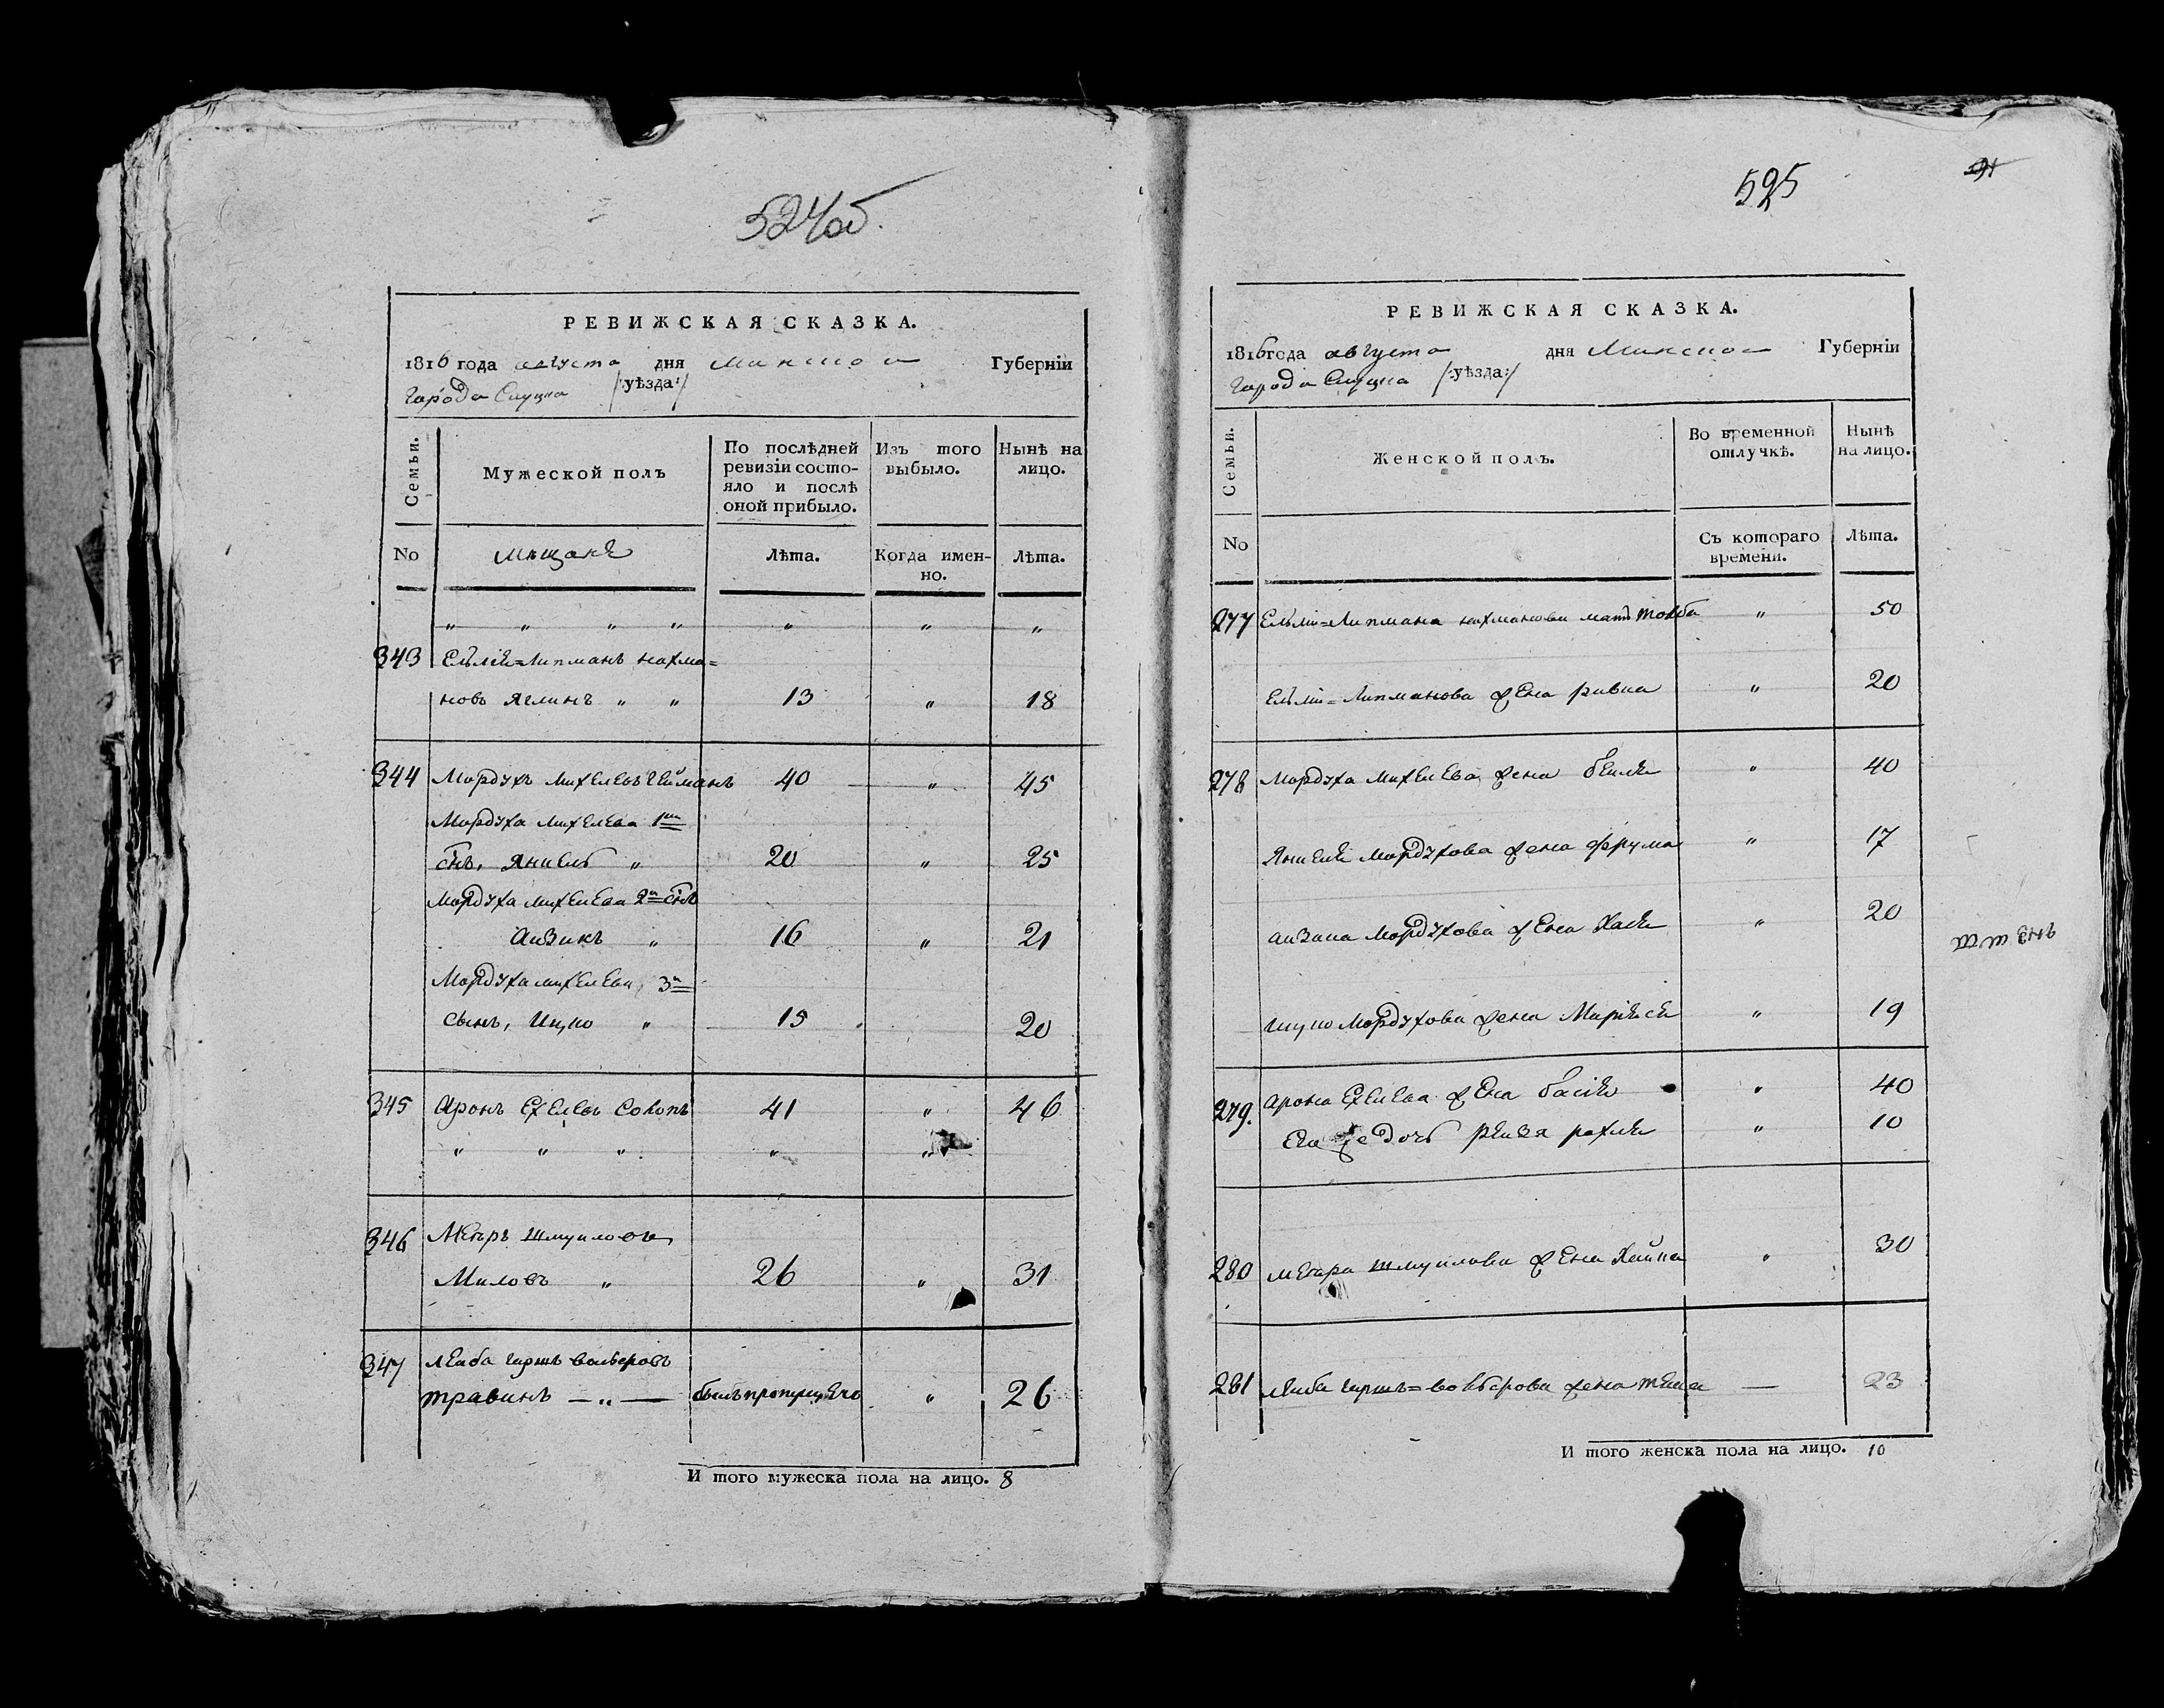 524об.
РЕВИЖСКАЯ СКАЗКА.
1816 года августа дня Минской Губерніи
города Слуцка /:уѣзда:/
Семьи. Мужеской полъ По послѣдней ревизіи состояло и послѣ оной прибыло. Изъ того выбыло. Нынѣ на лицо.
No Мѣщане Лѣта. Когда именно. Лѣта.
" " " " " " "
343 Ельліи=Липманъ нахма=
новъ Яглинъ " " 13 " 18
344 Мордухъ Михелевъ Гейманъ 40 " 45
Мордуха Михелева 1й
сынъ, Янкель " 20 " 25
Мордуха Михелева 2й сынъ
Аизикъ " 16 " 21
Мордуха Михелева 3й
сынъ, Ицко " 15 20
345 Аронъ Ехелевъ 41 " 46
" " " " "
346 Меіръ Шмуиловъ
Миловъ " 26 " 31
347 Леиба гиршъ вольеровъ
травинъ — " — былъ пропущенъ " 26
И того мужеска пола на лицо. 8
525
91
РЕВИЖСКАЯ СКАЗКА.
1816 года августа дня Минской Губерніи
города Слуцка /:уѣзда:/
Семьи. Женской полъ. Во временной отлучкѣ. Нынѣ на лицо.
No Съ котораго времени. Лѣта.
277 Ельліи=Липмана нахманова мать Товба " 50
Ельліи=Липманова жена ривка " 20
278 Мордуха Михелева жена беиля " 40
Янкеля Мордухова жена фрума " 17
аизика Мордухова жена Хася " 20
ицко Мордухова жена Маріяся " 19
279. арона Ехелева жена басія " 40
Его же дочь рахля " 10
280 меира шмуилова жена Хаика " 30
281 леиба гиршъ=вольерова жена — 23
И того женска пола на лицо. 10